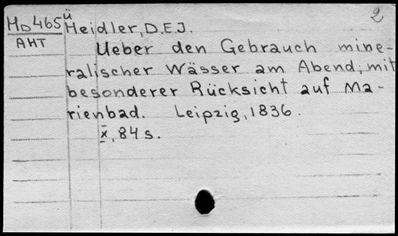 2
Mᴅ465ü Heidler, D.E.J.
AHT
Ueber den Gebrauch mine-
ralischer Wässer am Abend, mit
besonderer Rücksicht auf Ma-
rienbad. Leipzig, 1836.
x, 84 s.